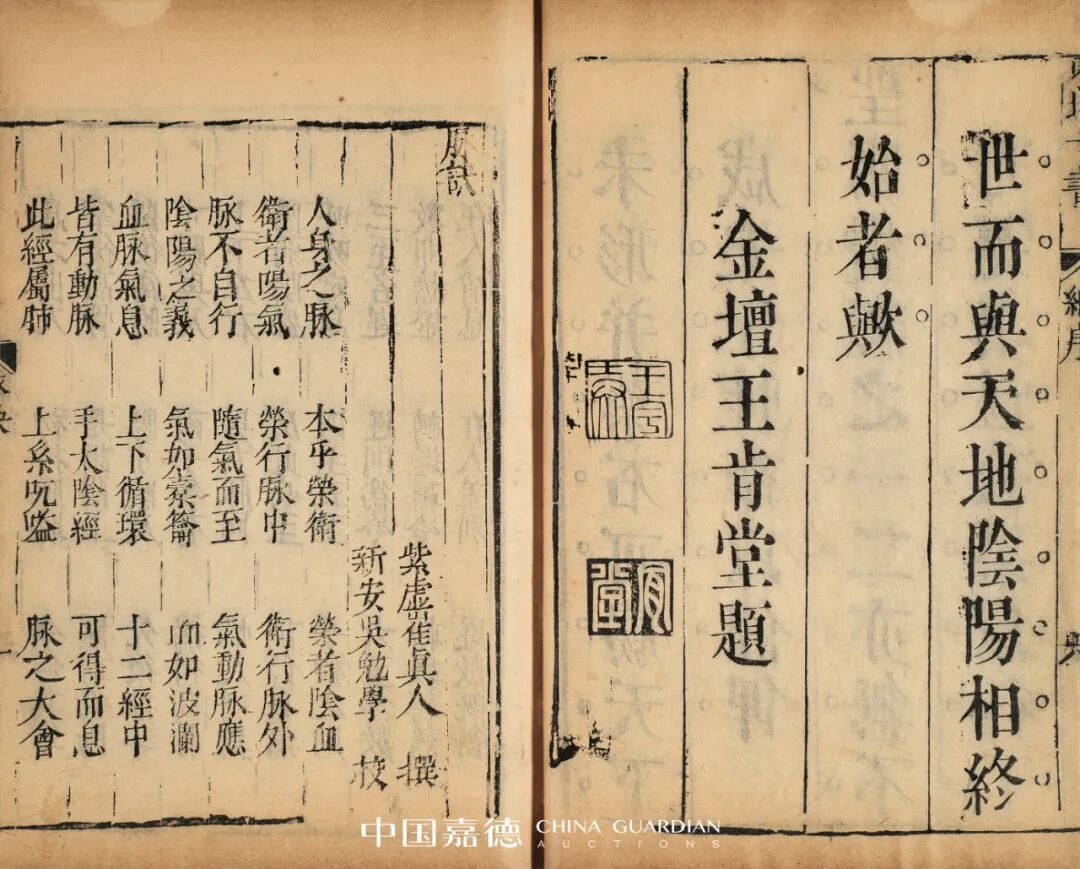 世而與天地陰陽相終
始者歟
金壇王肯堂題
脉訣
紫虛崔眞人 撰
新安吳勉學 校
人身之脉 本乎榮衛 榮者陰血
衛者陽氣 榮行脉中 衛行脉外
脉不自行 隨氣而至 氣動脉應
陰陽之義 氣如橐籥 血如波瀾
血脉氣息 上下循環 十二經中
皆有動脉 手太陰經 可得而息
此經屬肺 上系吭嗌 脉之大會
中国嘉德 CHINA GUARDIAN
AUCTIONS